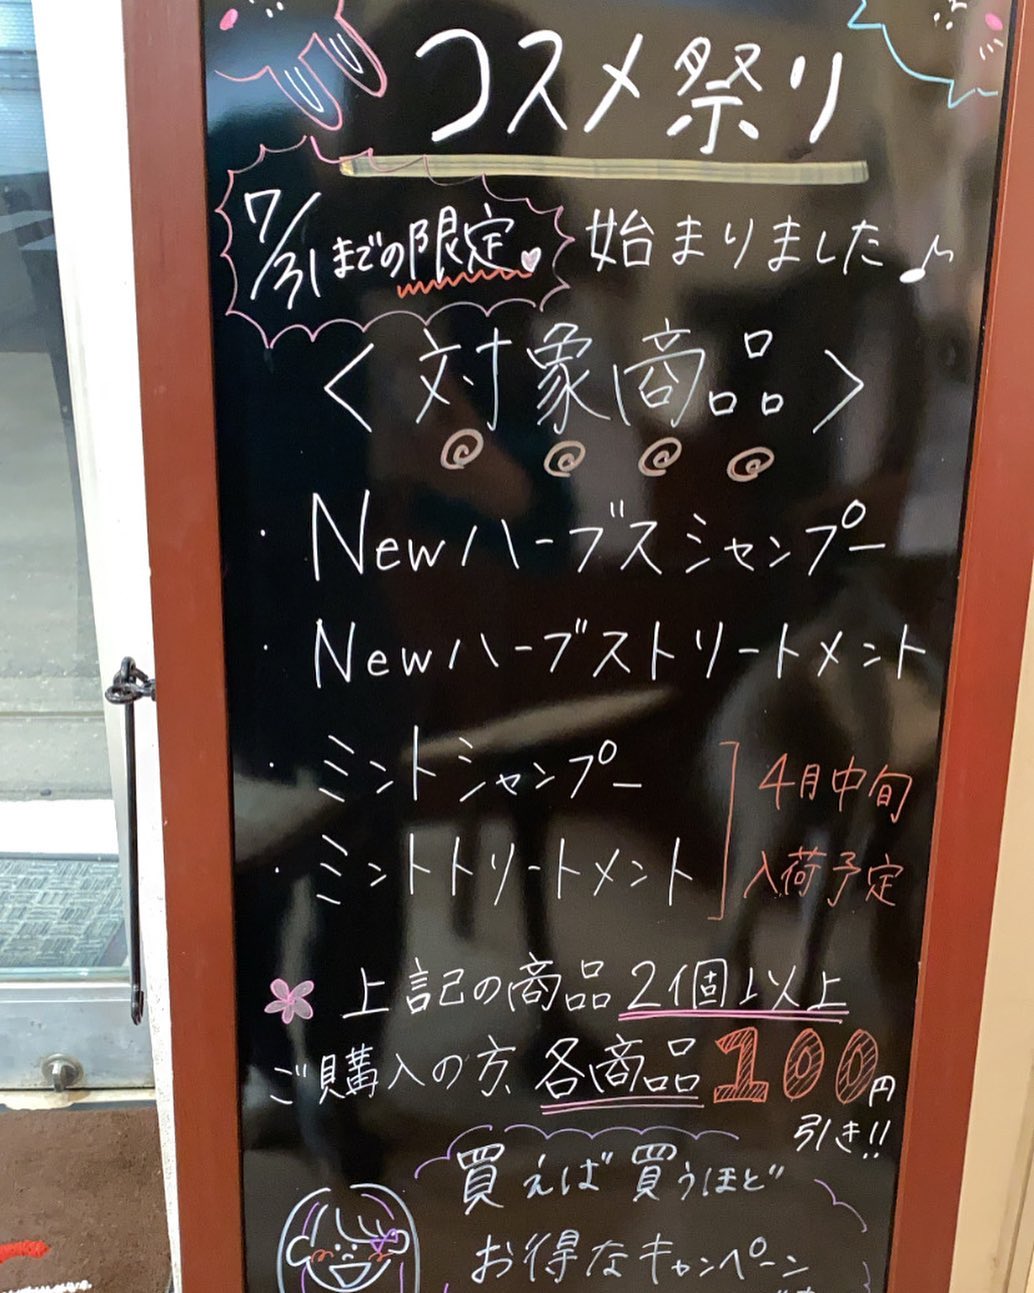 コスメ祭り
7/31までの限定 始まりました♪
＜対象商品＞
・Newハーブスシャンプー
・Newハーブストリートメント
・ミントシャンプー
・ミントトリートメント
4月中旬
入荷予定
上記の商品2個以上
ご購入の方、各商品100円
引き!!
買えば買うほど
お得なキャンペーン